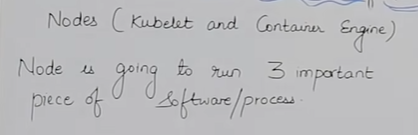 Nodes (Kubelet and Container Engine)
Node is going to run 3 important
piece of Software/process.